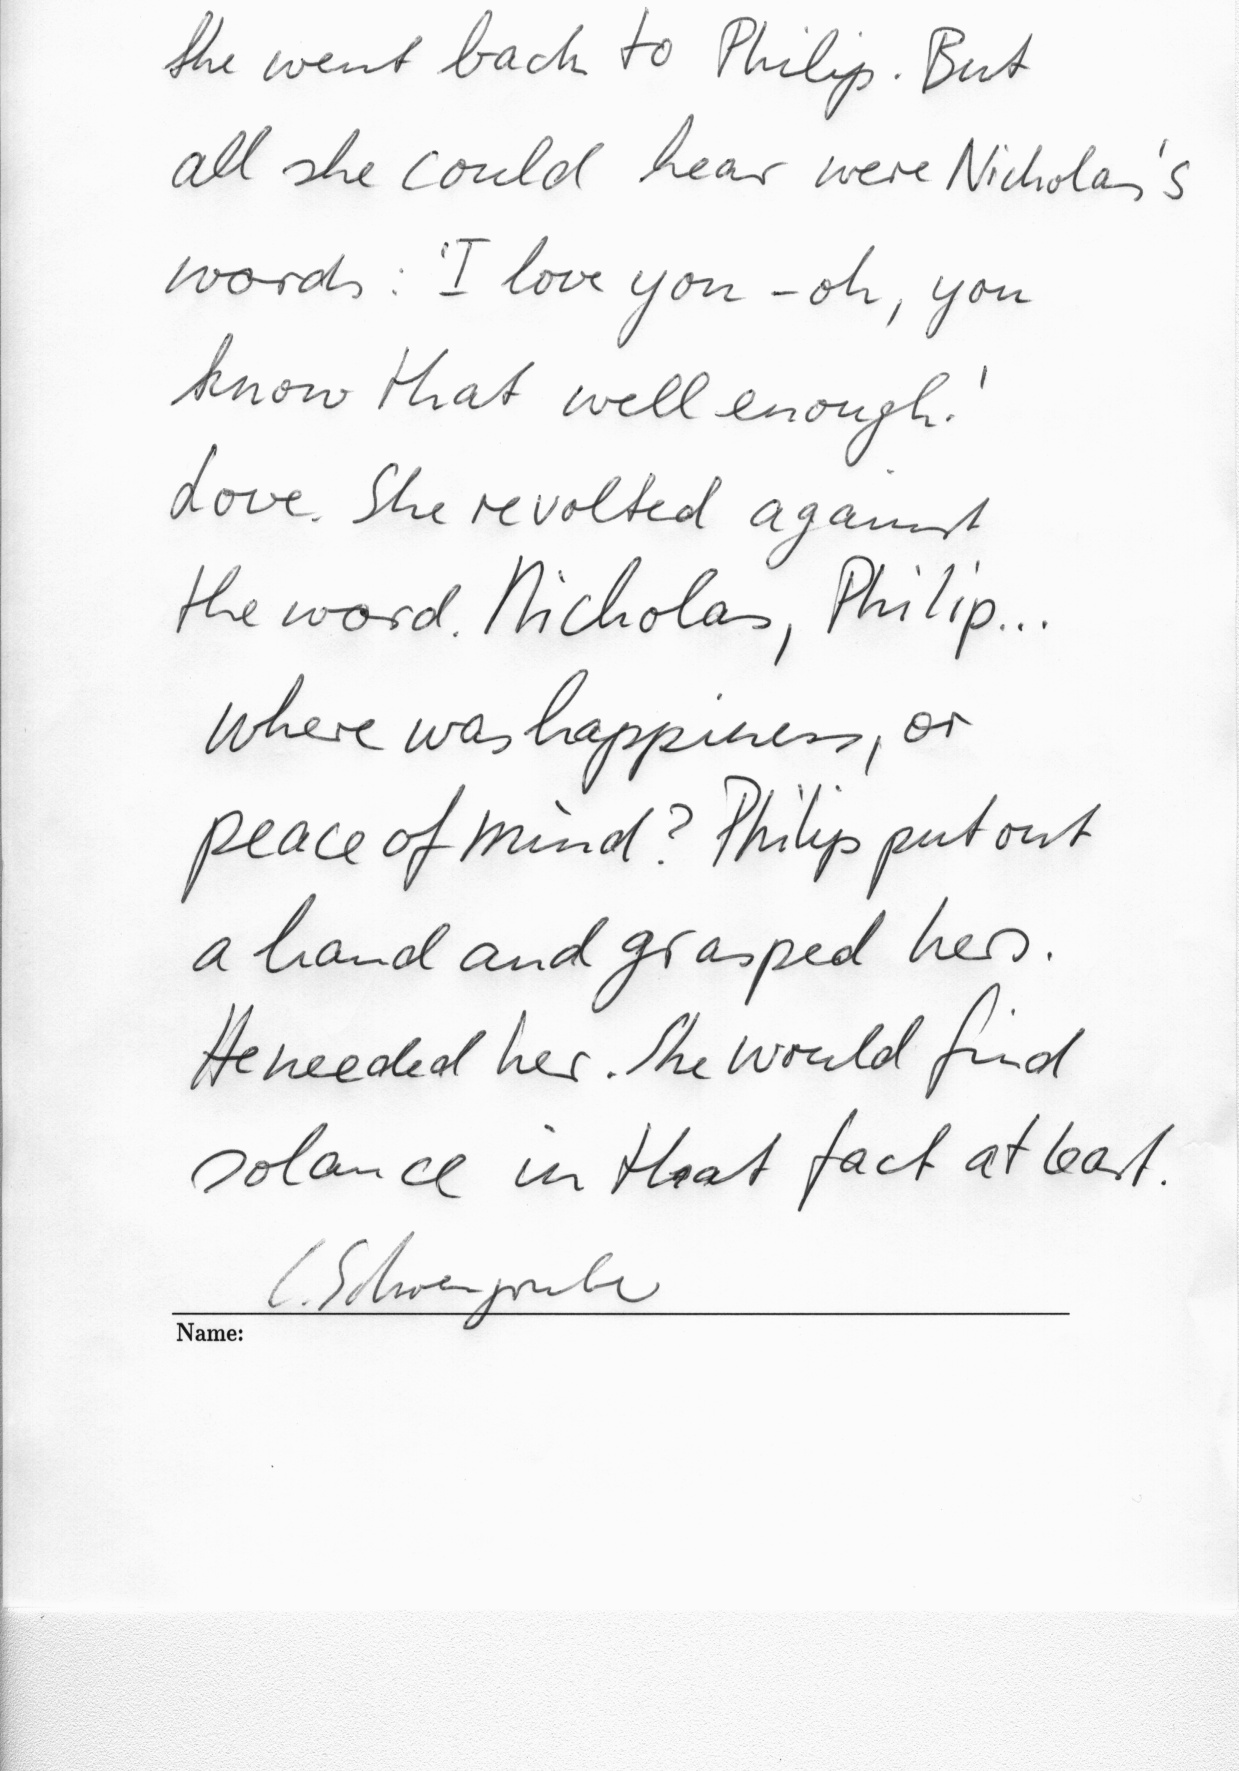 She went back to Philip. But
all she could hear were Nicholas's
words: 'I love you - oh, you
know that well enough.'
Love. She revolted against
the word. Nicholas, Philip...
where was happiness, or
peace of mind? Philip put out
a hand and grasped hers.
He needed her. She would find
solance in that fact at least.
Name: